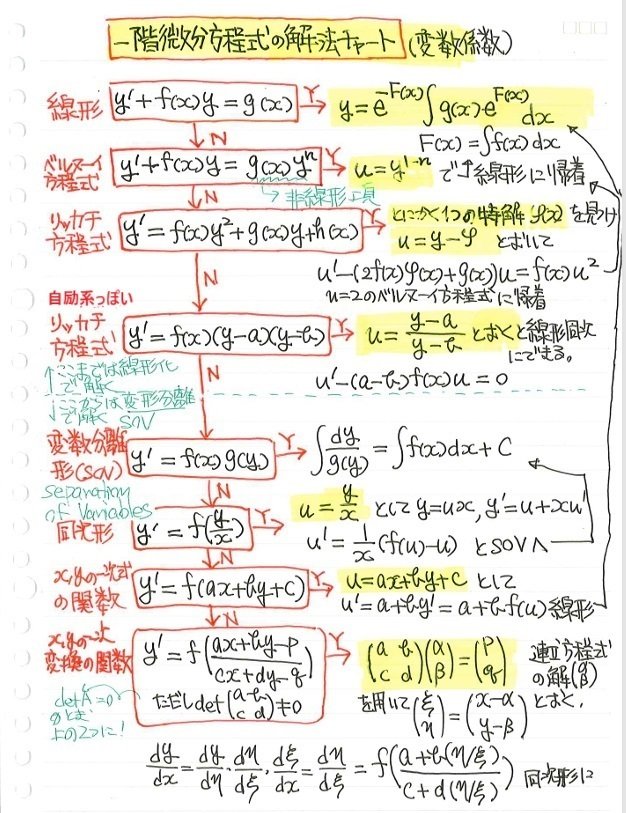 一階微分方程式の解法チャート (変数係数)
線形 y'+f(x)y=g(x) Y y=e^{-F(x)}∫g(x)e^{F(x)}dx
N F(x)=∫f(x)dx
ベルヌーイ方程式 y'+f(x)y=g(x)y^n Y u=y^{1-n} で↑線形に帰着
N → 非線形項
リッカチ方程式 y'=f(x)y²+g(x)y+h(x) Y とにかく1つの特解 φ(x) を見つけ
u=y-φ とおいて
N u'-(2f(x)φ(x)+g(x))u=f(x)u²
n=2のベルヌーイ方程式に帰着
自励系っぽい
リッカチ方程式 y'=f(x)(y-a)(y-b) Y u=\frac{y-a}{y-b} とおくと線形同次にできる。
↑ここまでは線形化で解く N u'-(a-b)f(x)u=0
↓ここからは変形分離で解く SOV
変数分離形(SOV) y'=f(x)g(y) Y ∫\frac{dy}{g(y)}=∫f(x)dx+C
separation of Variables N
同次形 y'=f(\frac{y}{x}) Y u=\frac{y}{x} として y=ux, y'=u+xu'
N u'=\frac{1}{x}(f(u)-u) とSOVへ
x,yの一次式の関数 y'=f(ax+by+c) Y u=ax+by+c として
N u'=a+by'=a+b・f(u) 線形
x,yの一次変換の関数 y'=f(\frac{ax+by-p}{cx+dy-q}) Y \begin{pmatrix}a&b\\c&d\end{pmatrix}\begin{pmatrix}α\\β\end{pmatrix}=\begin{pmatrix}p\\q\end{pmatrix} 連立方程式の解\begin{pmatrix}α\\β\end{pmatrix}
ただしdet\begin{pmatrix}a&b\\c&d\end{pmatrix}≠0 を用いて\begin{pmatrix}ξ\\η\end{pmatrix}=\begin{pmatrix}x-α\\y-β\end{pmatrix} とおく,
detA=0
のとき
上の2つに!
\frac{dy}{dx}=\frac{dy}{dη}・\frac{dη}{dξ}・\frac{dξ}{dx}=\frac{dη}{dξ}=f(\frac{a+b(η/ξ)}{c+d(η/ξ)}) 同次形に